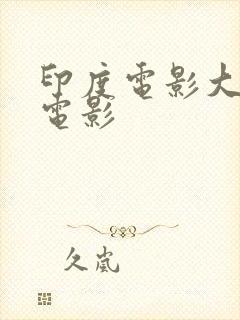 印度電影大
電影
久嵐